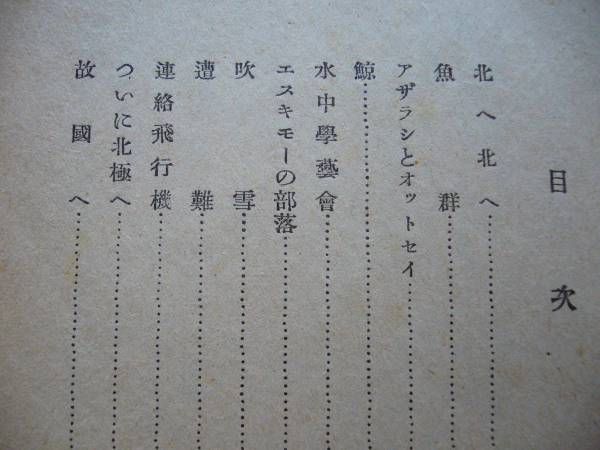 目次
北へ北へ
魚群
アザラシとオットセイ
鯨
水中學藝會
エスキモーの部落
吹雪
遭難
連絡飛行機
ついに北極へ
故國へ